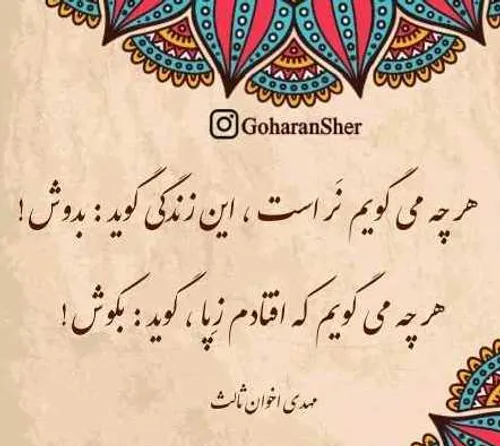 GoharanSher
هر چه می گویم نَر است ، این زندگی گوید : بدوش !
هر چه می گویم که افتادم زپا ، گوید : بکوش !
مهدی اخوان ثالث